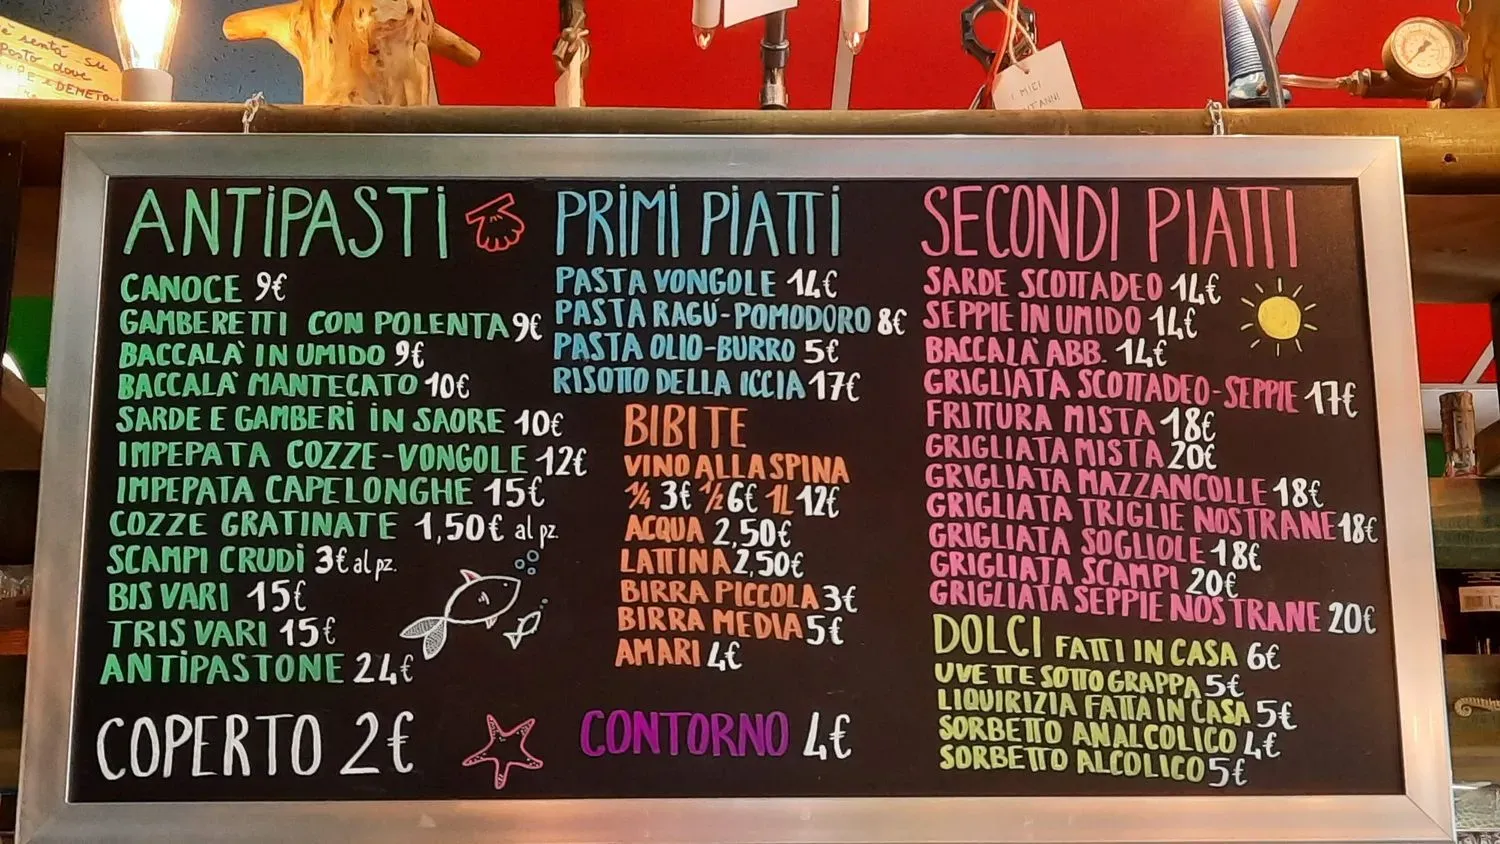 è sentá su
posto dove
E DEMETO
I MICI
ANTIPASTI
CANOCE 9€
GAMBERETTI CON POLENTA 9€
BACCALA' IN UMIDO 9€
BACCALA' MANTECATO 10€
SARDE E GAMBERI IN SAORE 10€
IMPEPATA COZZE-VONGOLE 12€
IMPEPATA CAPELONGHE 15€
COZZE GRATINATE 1,50€ al pz.
SCAMPI CRUDI 3€ al pz.
BIS VARI 15€
TRIS VARI 15€
ANTIPASTONE 24€
COPERTO 2€
PRIMI PIATTI
PASTA VONGOLE 14€
PASTA RAGÚ-POMODORO 8€
PASTA OLIO-BURRO 5€
RISOTTO DELLA ICCIA 17€
BIBITE
VINO ALLA SPINA
1/4 3€ 1/2 6€ 1L 12€
ACQUA 2,50€
LATTINA 2,50€
BIRRA PICCOLA 3€
BIRRA MEDIA 5€
AMARI 4€
CONTORNO 4€
SECONDI PIATTI
SARDE SCOTTADEO 14€
SEPPIE IN UMIDO 14€
BACCALA' ABB. 14€
GRIGLIATA SCOTTADEO-SEPPIE 17€
FRITTURA MISTA 18€
GRIGLIATA MISTA 20€
GRIGLIATA MAZZANCOLLE 18€
GRIGLIATA TRIGLIE NOSTRANE 18€
GRIGLIATA SOGLIOLE 18€
GRIGLIATA SCAMPI 20€
GRIGLIATA SEPPIE NOSTRANE 20€
DOLCI FATTI IN CASA 6€
UVETTE SOTTO GRAPPA 5€
LIQUIRIZIA FATTA IN CASA 5€
SORBETTO ANALCOLICO 4€
SORBETTO ALCOLICO 5€